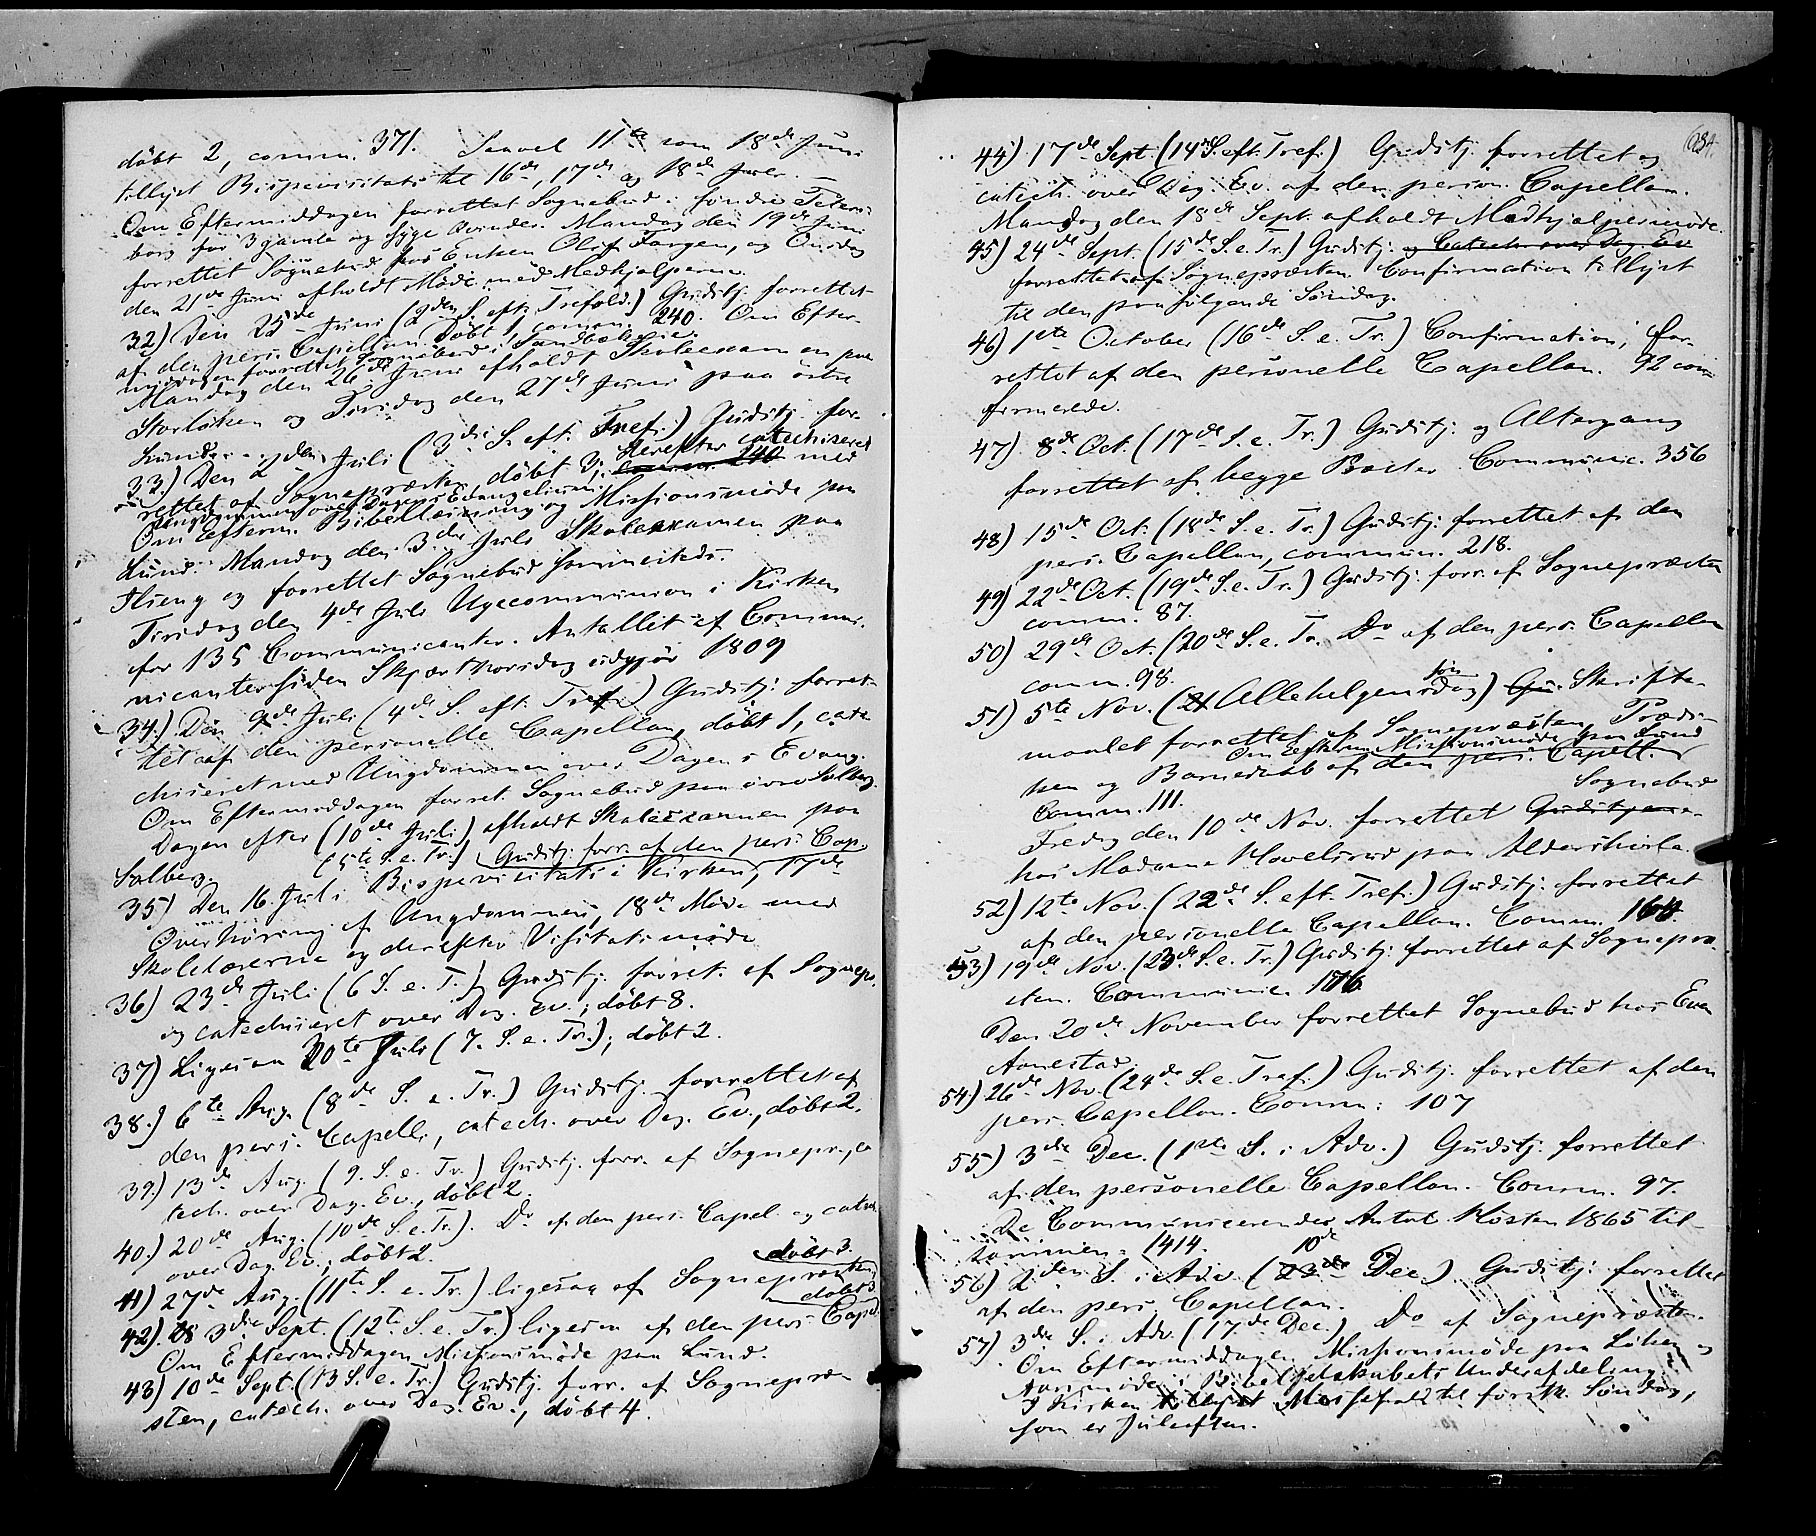 döbt 2, comm. 371. Saavel 11te som 18de Juni
tillyst Bispevisitats til 16de, 17de og 18de Juli. —
Om Eftermiddagen forrettet Sognebud i søndre
borg for 3 gamle og syge Qvinder. Mandag den 19de Juni
forrettet Sognebud hos Enken Oliv Fargen, og Onsdag
den 21de Juni afholdt Möde med Medhjelperne.
32) Den 25de Juni (2den S. eft. Trefold.) Gudstj. forrettet
af den pers. Capellan. Döbt 1, comm. 240. Om Efter-
middagen forrettet Sognebud i
Mandag den 26de Juni afholdt Skoleexamen paa
Storlöken og Tirsdag den 27de Juni paa östre
33.) Den 2den Juli (3die S. eft. Tref.) Gudstj. for-
rettet af Sognepræsten, döbt 3; derefter catechiseret
comm. 240 med
Ungdommen over Dagens Evangelium.
Om Efterm. Bibellæsning og Missionsmöde paa
Lund. Mandag den 3die Juli Skoleexamen paa
Flseng og forrettet Sognebud sammesteds.
Tirsdag den 4de Juli Ugecommunion i Kirken
for 135 Communicanter. Antallet af Commu-
nicanter siden Skjærthorsdag udgjör 1809
34.) Den 9de Juli (4de S. eft. Tref.) Gudstj. forret-
tet af den personelle Capellan, döbt 1, cate-
chiseret med Ungdommen over Dagens Evang.
Om Eftermiddagen forret. Sognebud paa övre Solberg.
Dagen efter (10de Juli) afholdt Skoleexamen paa
Solberg. (5te S. e. Tr.) Gudstj. forr. af den pers. Cap.
35) Den 16. Juli Bispevisitats i Kirken, 17de
Overhöring af Ungdommen, 18de Möde med
Skolelærerne og derefter Visitatsmöde
36) 23de Juli (6 S. e. T.) Gudstj. forret. af Sognepr.
og catechiseret over Dag. Ev.; döbt 8.
37) Ligesaa 30te Juli (7. S. e. Tr.); döbt 2.
38.) 6te Aug. (8de S. e. Tr.) Gudstj. forrettet af
den pers. Capell., catech. over Dag. Ev., döbt 2.
39.) 13de Aug. (9. S. e. Tr.) Gudstj. forr. af Sognepr., ca
tech. over Dag. Ev., döbt 2.
40.) 20de Aug. (10de S. e. Tr.). Do af den pers. Capel. og catech.
over Dag. Ev., döbt 2.
döbt 3.
41) 27de Aug. (11te S. e. Tr.) ligesaa af Sognepræsten
döbt 3
42). 3die Sept. (12te S. e. Tr.) ligesaa af den pers. Capel.
Om Eftermiddagen Missionsmöde paa Lund.
43) 10de Sept. (13 S. e. Tr.) Gudstj. forr. af Sognepræ
sten, catech. over Dag. Ev., döbt 4.
634.
44) 17de Sept. (14 S. eft. Tref.) Gudstj. forrettet og
catech. over Dag. Ev. af den person. Capellan.
Mandag den 18de Sept. afholdt Medhjelpermöde.
45) 24de Sept. (15de S. e. Tr.) Gudstj. og Catech. over Dag. Ev
forrettet af Sognepræsten. Confirmation tillyst
til den paafølgende Søndag.
46) 1ste October (16de S. e. Tr.) Confirmation, for-
rettet af den personelle Capellan. 92 con-
firmerede.
47) 8de Oct. (17de S. e. Tr.) Gudstj. og Altergang
forrettet af begge Præster. Communic. 356
48) 15de Oct. (18de S. e. Tr.) Gudstj. forrettet af den
pers. Capellan, commun. 218.
49) 22de Oct. (19de S. e. Tr.) Gudstj. forr. af Sognepræsten
comm. 87.
50) 29de Oct. (20de S. e. Tr. Do af den pers. Capellan
comm. 98.
51) 5te Nov. (21 Allehelgensdag) Gu. Skrifte-
maalet forrettet af Sognepræsten, Prædi-
Om Efterm. Missionsmöde paa Lund
ken og Barnedaab af den pers. Capell.
Comm. 111. Sognebud
Fredag den 10de Nov. forrettet Gudstjene-
hos Madame Hovelsrud paa Aldershvile.
52) 12te Nov. (22de S. eft. Tref.) Gudstj. forrettet
af den personelle Capellan. Comm. 168
53) 19de Nov. (23de S. e. Tr.) Gudstj. forrettet af Sognepræ-
sten. Communic. 176
Den 20de November forrettet Sognebud hos Even
Aanestad.
54.) 26de Nov. (24de S. e. Tref.) Gudstj. forrettet af den
pers. Capellan. Comm: 107
55) 3die Dec. (1ste S. i Adv.) Gudstj. forrettet
af den personelle Capellan. Comm. 97.
De Communicerendes Antal Hösten 1865 til-
sammen = 1414. 10de
56) 2den S. i Adv. (23de Dec.) Gudstj. forrettet
af den pers. Capellan.
57) 3die S. i Adv. (17de Dec.) Do af Sognepræsten.
Om Eftermiddagen Missionsmöde paa Löken og
Aarsmöde i Bibelselskabets Underafdeling
I Kirken tillyst Messefald til förstk. Søndag,
som er Juleaften.